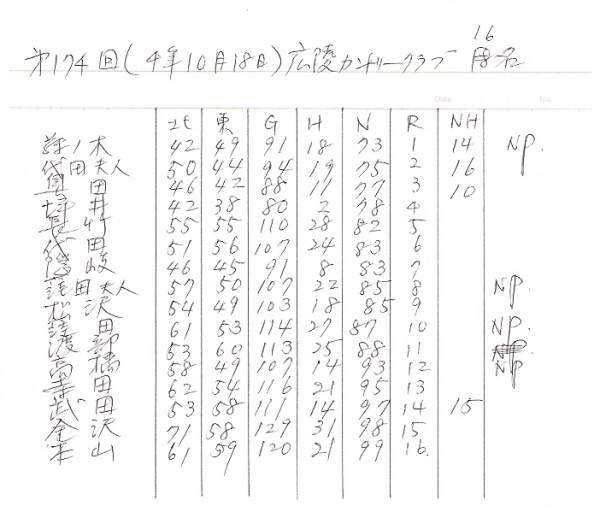 第174回(4年10月18日)広陵カントリークラブ 16名
Date No.
北 東 G H N R NH
木 42 49 91 18 73 1 14 NP.
代田夫人 50 44 94 19 75 2 16
田 46 42 88 11 77 3 10
井 42 38 80 2 78 4
竹 55 55 110 28 82 5
田 51 56 107 24 83 6
岐 46 45 91 8 83 7
田夫人 57 50 107 22 85 8 NP.
松沢 54 49 103 18 85 9
田 61 53 114 27 87 10 NP.
渡部 53 60 113 25 88 11
高橋 58 49 107 14 93 12 NP
寺田 62 54 116 21 95 13
武田 53 58 111 14 97 14 15
金沢 71 58 129 31 98 15
本山 61 59 120 21 99 16.